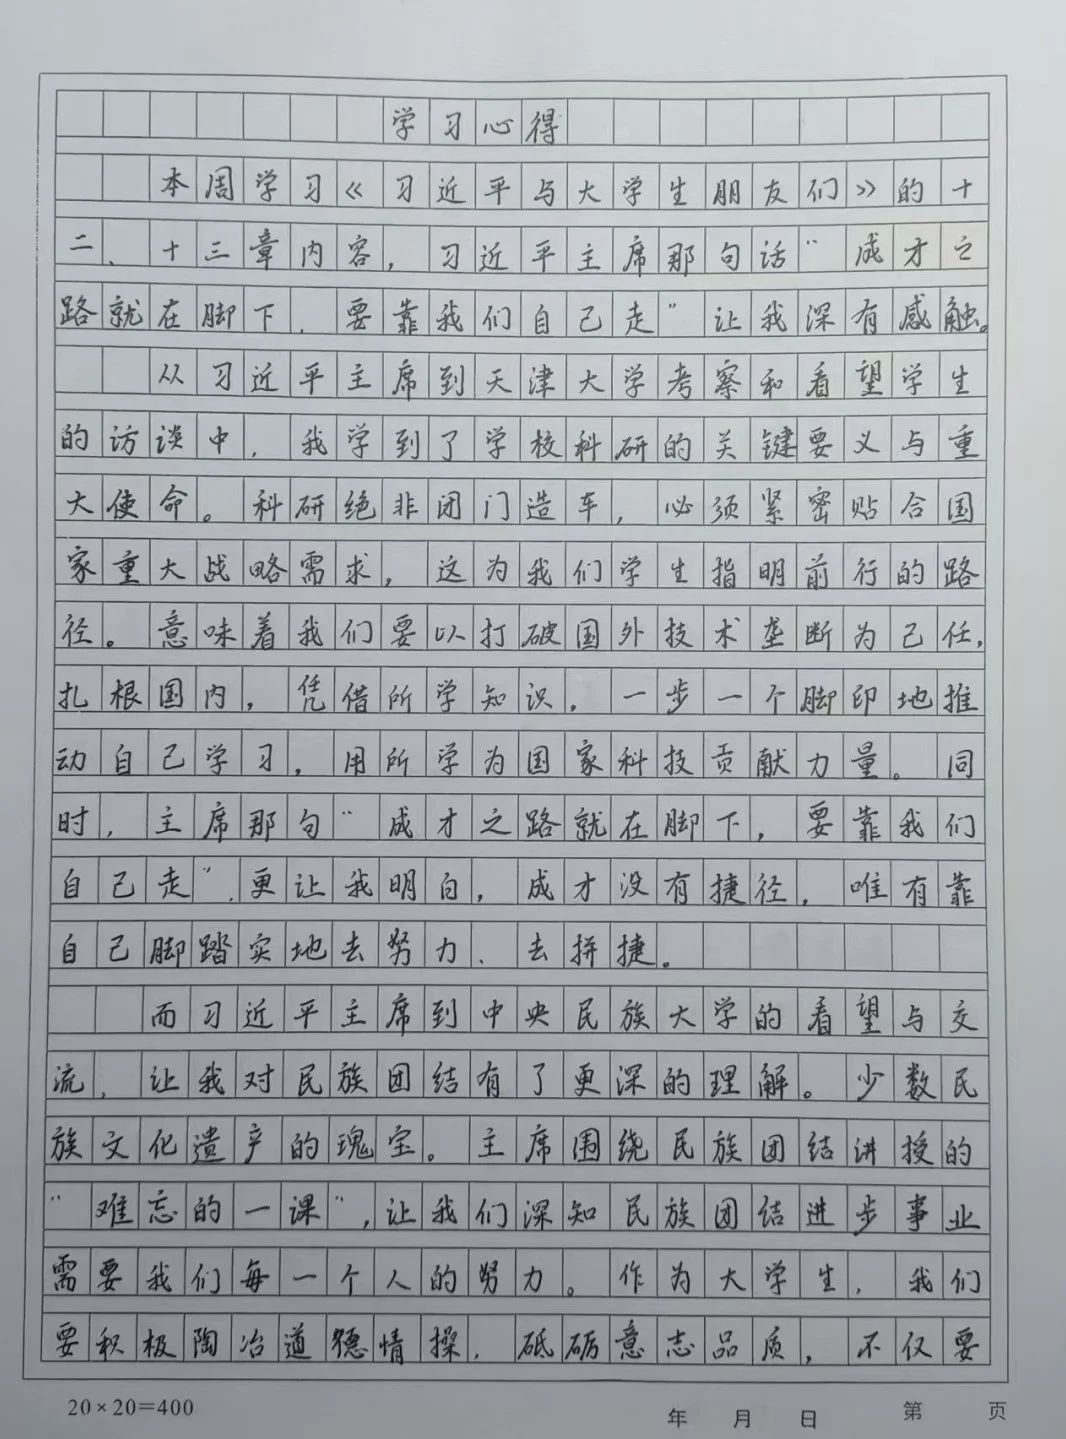 学习心得
本周学习《习近平与大学生朋友们》的十
二、十三章内容，习近平主席那句话“成才之
路就在脚下，要靠我们自己走”让我深有感触。
从习近平主席到天津大学考察和看望学生
的访谈中，我学到了学校科研的关键要义与重
大使命。科研绝非闭门造车，必须紧密贴合国
家重大战略需求，这为我们学生指明前行的路
径。意味着我们要以打破国外技术垄断为己任，
扎根国内，凭借所学知识，一步一个脚印地推
动自己学习，用所学为国家科技贡献力量。同
时，主席那句“成才之路就在脚下，要靠我们
自己走”，更让我明白，成才没有捷径，唯有靠
自己脚踏实地去努力、去拼捷。
而习近平主席到中央民族大学的看望与交
流，让我对民族团结有了更深的理解。少数民
族文化遗产的瑰宝。主席围绕民族团结讲授的
“难忘的一课”，让我们深知民族团结进步事业
需要我们每一个人的努力。作为大学生，我们
要积极陶冶道德情操，砥砺意志品质，不仅要
20×20=400
年 月 日 第 页